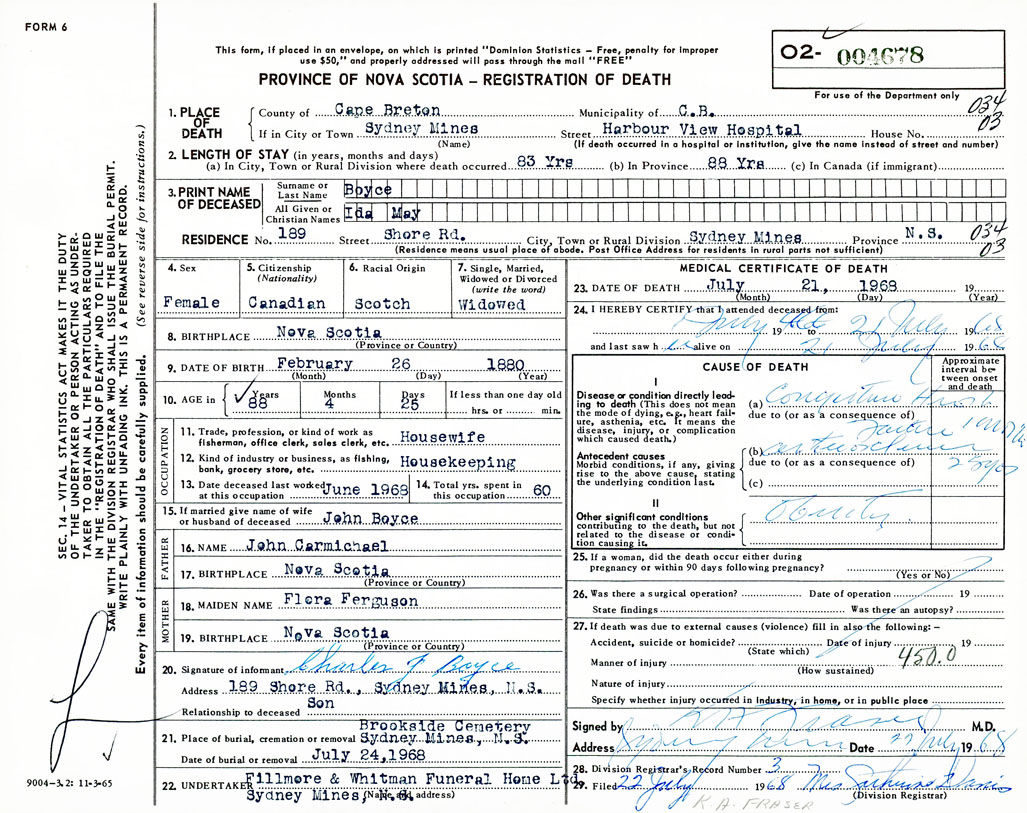 FORM 6
This form, if placed in an envelope, on which is printed "Dominion Statistics – Free, penalty for improper
use $50," and properly addressed will pass through the mail "FREE"
PROVINCE OF NOVA SCOTIA – REGISTRATION OF DEATH
O2- 004678
For use of the Department only
034
03
SEC. 14 – VITAL STATISTICS ACT MAKES IT THE DUTY
OF THE UNDERTAKER OR PERSON ACTING AS UNDER-
TAKER TO OBTAIN ALL THE PARTICULARS REQUIRED
IN THE "REGISTRATION OF DEATH" AND TO FILE THE
SAME WITH THE DIVISION REGISTRAR WHO SHALL ISSUE THE BURIAL PERMIT.
WRITE PLAINLY WITH UNFADING INK. THIS IS A PERMANENT RECORD.
Every item of information should be carefully supplied. (See reverse side for instructions.)
9004-3.2: 11-3-65
1. PLACE OF DEATH
County of Cape Breton Municipality of C.B.
If in City or Town Sydney Mines Street Harbour View Hospital House No.
(Name) (If death occurred in a hospital or institution, give the name instead of street and number)
2. LENGTH OF STAY (in years, months and days)
(a) In City, Town or Rural Division where death occurred 83 Yrs (b) In Province 88 Yrs. (c) In Canada (if immigrant)
3. PRINT NAME OF DECEASED
Surname or Last Name Boyce
All Given or Christian Names Ida May
RESIDENCE No. 189 Street Shore Rd. City, Town or Rural Division Sydney Mines Province N.S.
034
03
(Residence means usual place of abode. Post Office Address for residents in rural parts not sufficient)
4. Sex Female
5. Citizenship (Nationality) Canadian
6. Racial Origin Scotch
7. Single, Married, Widowed or Divorced (write the word) Widowed
8. BIRTHPLACE Nova Scotia
(Province or Country)
9. DATE OF BIRTH February 26 1880
(Month) (Day) (Year)
10. AGE in Years 88 Months 4 Days 25 If less than one day old
hrs. or min.
OCCUPATION
11. Trade, profession or kind of work as
fisherman, office clerk, sales clerk, etc. Housewife
12. Kind of industry or business, as fishing,
bank, grocery store, etc. Housekeeping
13. Date deceased last worked at this occupation June 1968
14. Total yrs. spent in this occupation 60
15. If married give name of wife
or husband of deceased John Boyce
FATHER
16. NAME John Carmichael
17. BIRTHPLACE Nova Scotia
(Province or Country)
MOTHER
18. MAIDEN NAME Flora Ferguson
19. BIRTHPLACE Nova Scotia
(Province or Country)
20. Signature of informant Charles F Boyce
Address 189 Shore Rd., Sydney Mines, N.S.
Relationship to deceased Son
Brookside Cemetery
21. Place of burial, cremation or removal Sydney Mines, N.S.
Date of burial or removal July 24,1968
22. UNDERTAKER Fillmore & Whitman Funeral Home Ltd
Sydney Mines, N.S. (Name and address)
MEDICAL CERTIFICATE OF DEATH
23. DATE OF DEATH July 21, 1968 19
(Month) (Day) (Year)
24. I HEREBY CERTIFY that I attended deceased from:
July 19 to 21 July 1968
and last saw h alive on 21 July 1968
CAUSE OF DEATH
Approximate interval between onset and death
I
Disease or condition directly lead-
ing to death (This does not mean
the mode of dying, e.g., heart fail-
ure, asthenia, etc. It means the
disease, injury, or complication
which caused death.)
(a) Congestive Heart
due to (or as a consequence of)
Failure
Antecedent causes
Morbid conditions, if any, giving
rise to the above cause, stating
the underlying condition last.
(b)
due to (or as a consequence of)
(c)
II
Other significant conditions
contributing to the death, but not
related to the disease or condi-
tion causing it.
Obesity
25. If a woman, did the death occur either during
pregnancy or within 90 days following pregnancy?
(Yes or No)
26. Was there a surgical operation? Date of operation 19
State findings Was there an autopsy?
27. If death was due to external causes (violence) fill in also the following:–
Accident, suicide or homicide? Date of injury 19
(State which)
450.0
Manner of injury
(How sustained)
Nature of injury
Specify whether injury occurred in industry, in home, or in public place
Signed by Fraser M.D.
Address Sydney Mines Date 22 July 1968
28. Division Registrar's Record Number 3
29. Filed 22 July 1968 Mrs
(Division Registrar)
K.A. FRASER